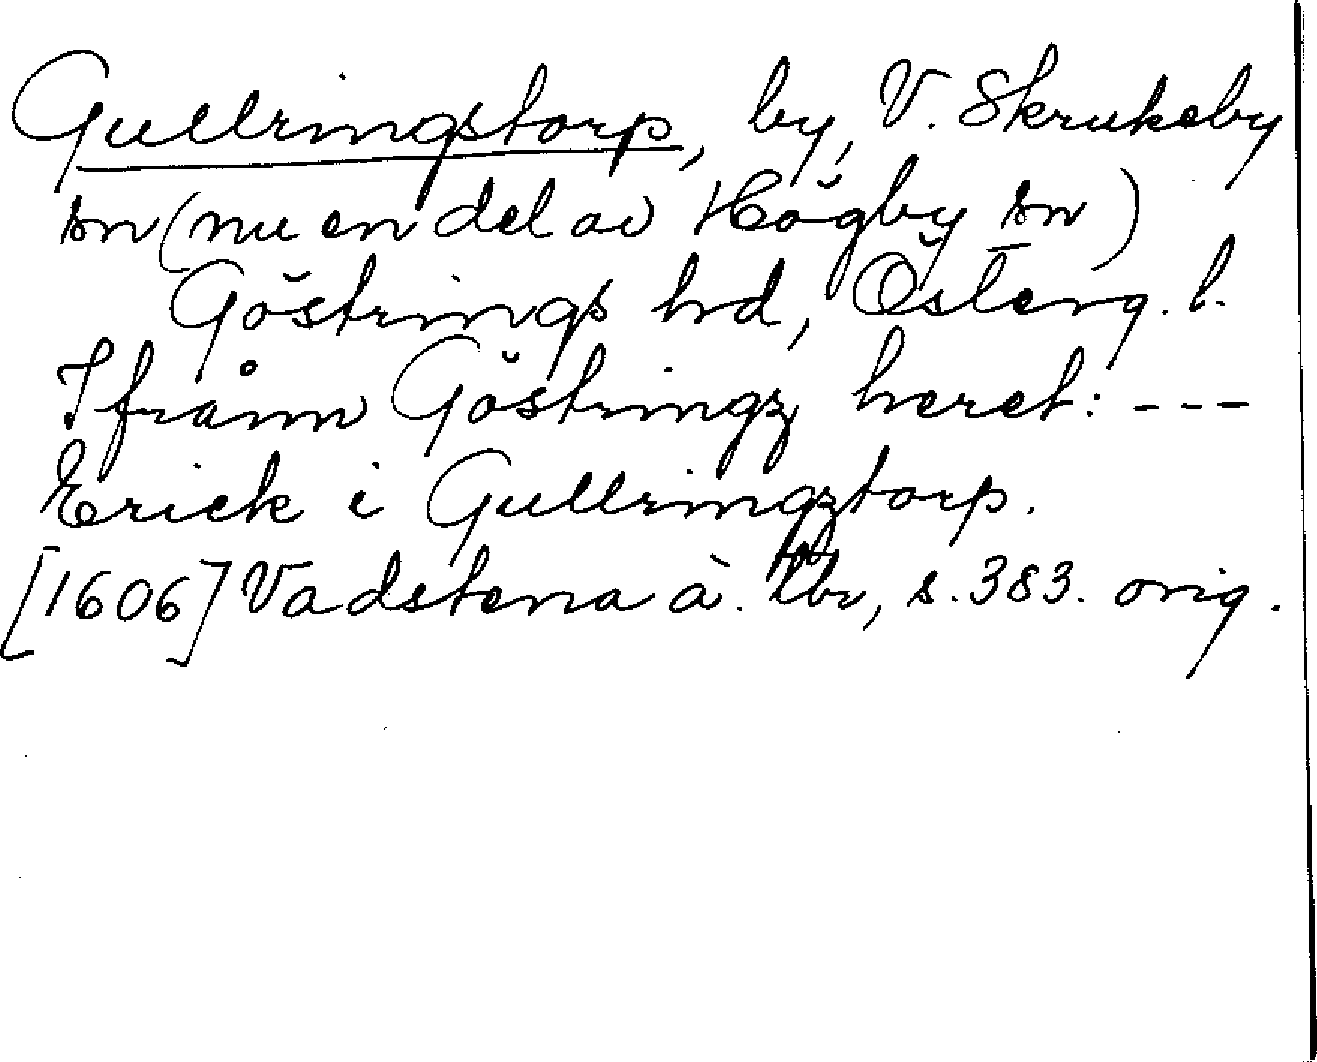 Gullringstorp, by, V. Skrukeby
sn (nu en del av Högby sn)
Göstrings hd, Österg. l.
Ifrånn Göstringz heret: ---
Erick i Gullringztorp.
[1606] Vadstena ä. tb, s. 383. orig.